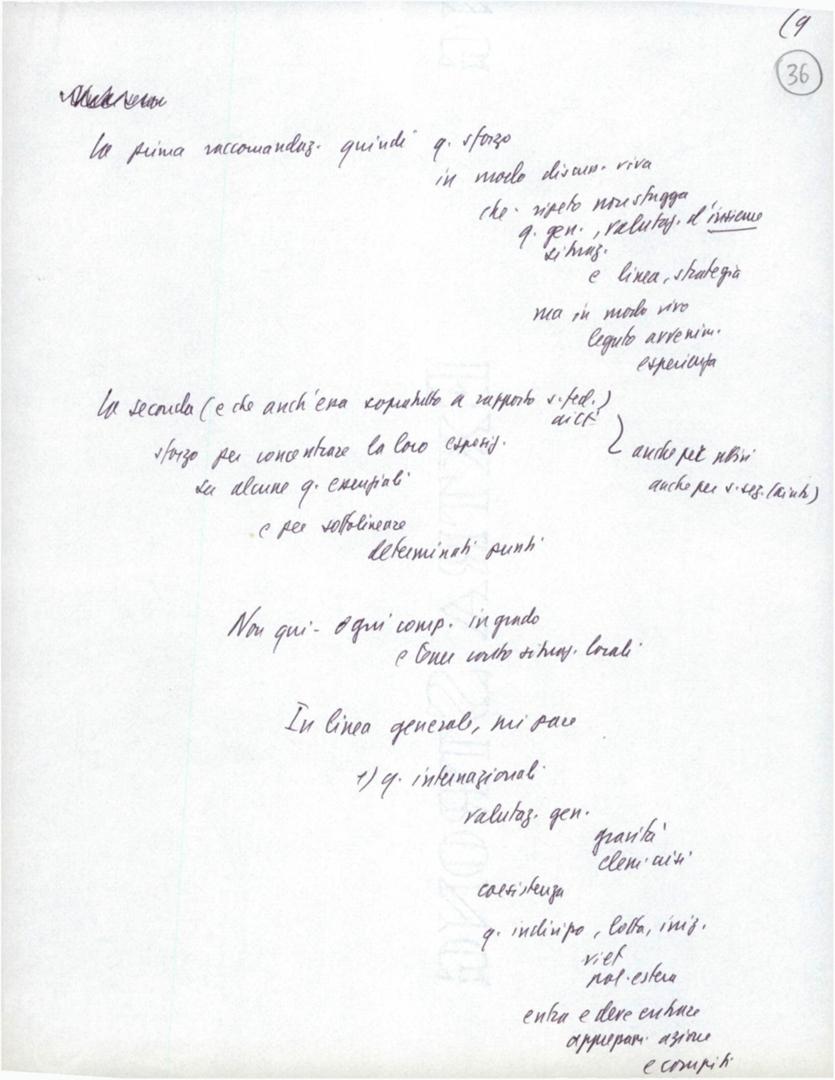 (9
36
la prima raccomandaz. quindi q. sforzo
in modo discuss. viva
che - ripeto non sfugga
q. gen., valutaz. d'insieme
situaz.
e linea, strategia
ma in modo vivo
legato avvenim.
esperienza
la seconda (e che anch'essa sopratutto a rapporto s. fed.)
anche per
sforzo per concentrare la loro esposiz.
anche per s. sez.
su alcune q. essenziali
e per sottolineare
determinati punti
Non qui - ogni comp. in grado
e tener conto situaz. locali
In linea generale, mi pare
1) q. internazionali
valutaz. gen.
gravità
elem. crisi
coesistenza
q. indirizzo, lotta, iniz.
viet
pol. estera
entra e deve entrare
azione
e compiti